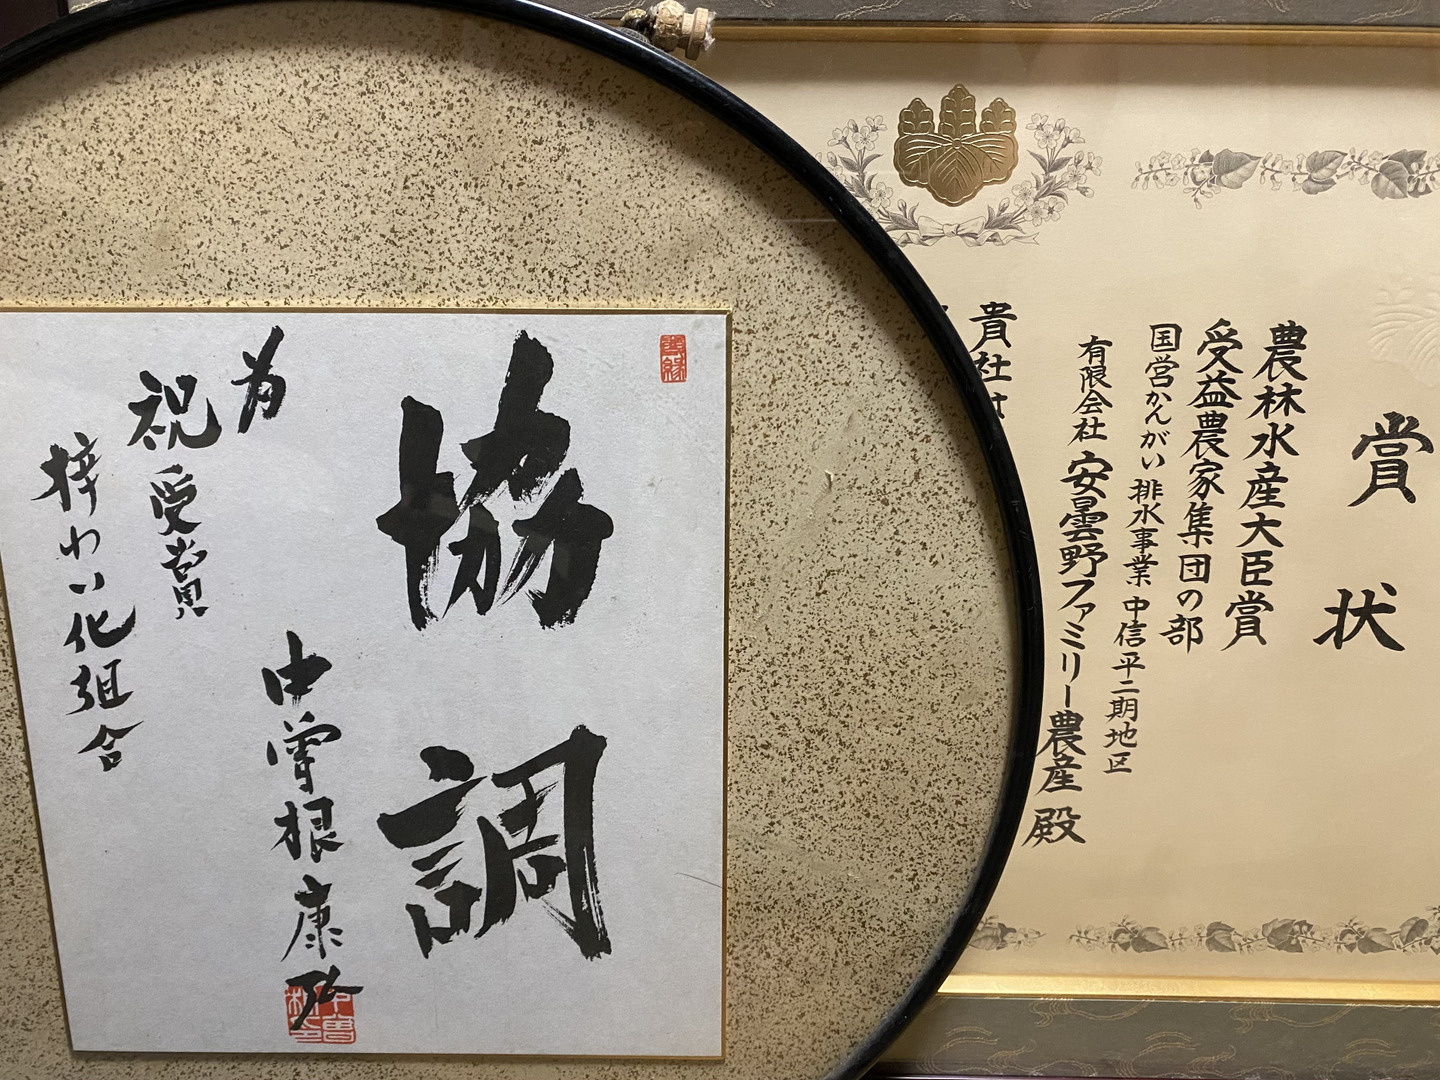 賞状
農林水産大臣賞
受益農家集団の部
国営かんがい排水事業 中信平二期地区
有限会社 安曇野ファミリー農産 殿
貴社は
協調
中曽根康弘
為
祝受賞
梓わい化組合